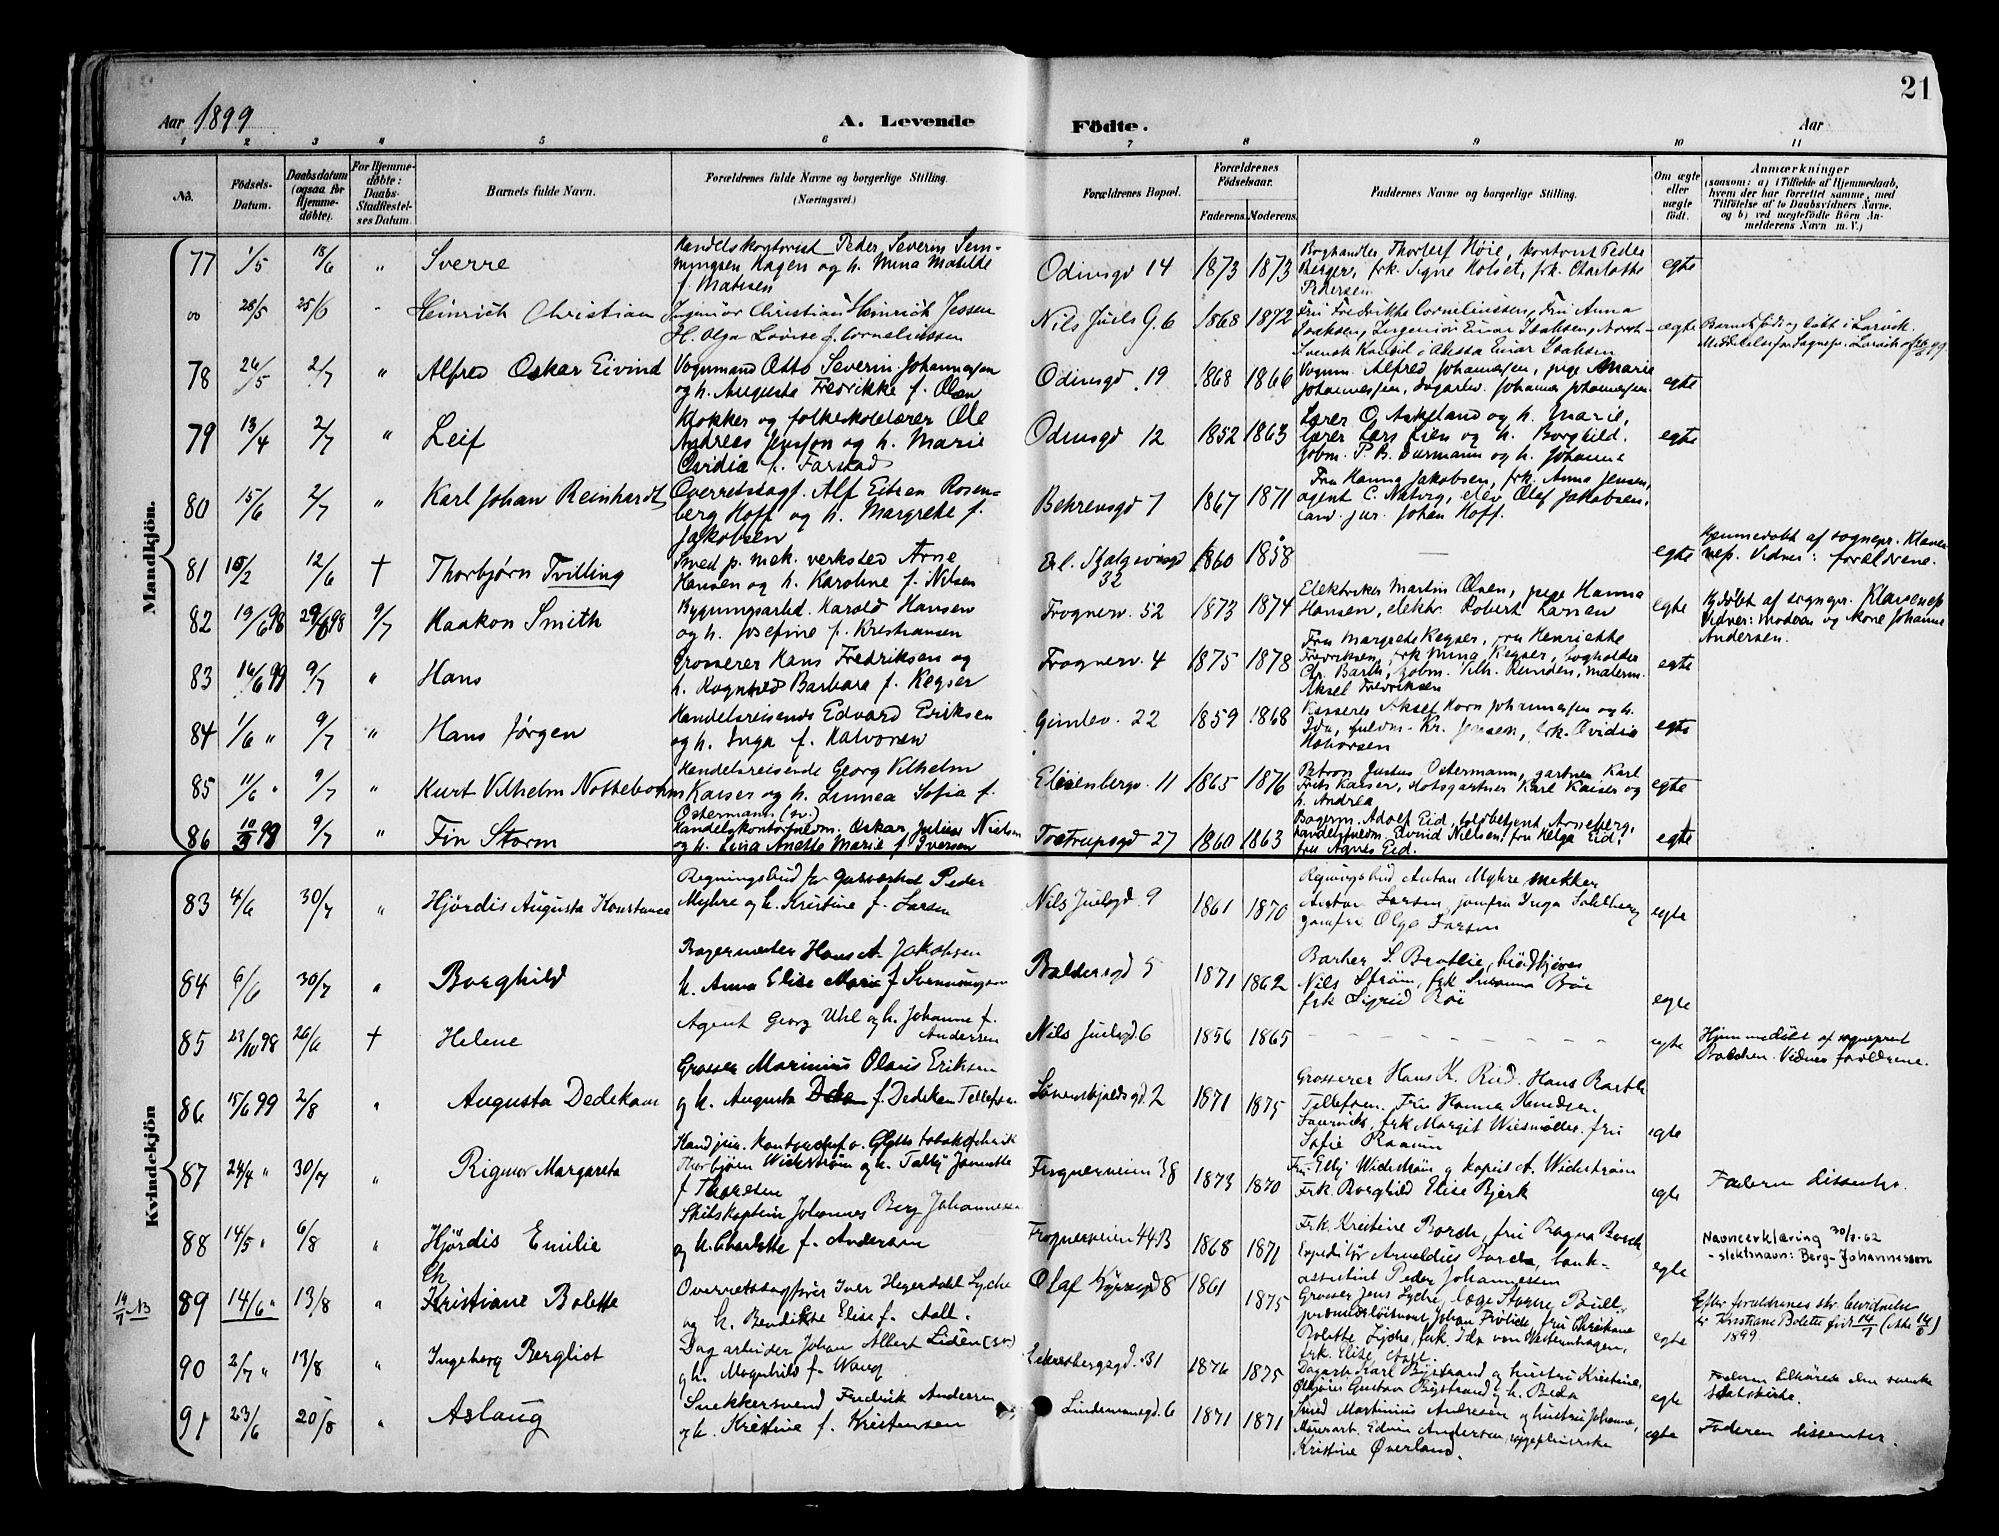 21
Aar 1899
A. Levende
Födte.
Aar
1 2 3 4 5 6 7 8 9 10 11
No.
Fødsels-Datum.
Daabsdatum (ogsaa for Hjemmedøbte).
For Hjemmedøbte: Daabs-Stadfæstelses Datum.
Barnets fulde Navn.
Forældrenes fulde Navne og borgerlige Stilling. (Næringsvei.)
Forældrenes Bopæl.
Forældrenes Fødselsaar.
Faderens. Moderens.
Faddernes Navne og borgerlige Stilling.
Om ægte eller uægte født.
Anmærkninger
(saasom: a) i Tilfælde af Hjemmedaab, hvem der har forrettet samme, med Tilføielse af to Daabsvidners Navne, og b) ved uægtefödte Börn Anmelderens Navn m. V.)
Mandkjön.
77 1/5 18/6 " Sverre
Handelskontorist Peder Severin Hem-
mingsen Hagen og h. Mina Matilde
f. Matisen
Odinsgd 14 1873 1873
Boghandler Thorleif Høie, kontorist Peder
Berger, frk. Signe Holset, frk. Charlotte
Pedersen
egte
28/5 25/6 Heinrich Christian
Ingeniør Christian Heinrich Jessen
H. Olga Lovise f. Corneliussen
Nils Juels G. 6 1868 1872
Fru Fredrikke Corneliussen, Fru Anna
Isaksen, Ingeniør Einar Isaksen,
Svensk Konsul i Einar Isaksen
ægte
Barnet født og døbt i Larvik.
78 26/5 2/7 " Alfred Oskar Eivind
Vognmand Otto Severin Johannesen
og h. Augusta Fredrikke f. Olsen
Odinsgd. 19 1868 1866
Vognm. Alfred Johannesen, pige Marie
Johannesen, dagarb. Johannes Johannesen
egte
79 13/4 2/7 " Leif
Klokker og folkeskolelærer Ole
Andreas Jensson og h. Marie
Ovidia f. Farstad
Odinsgd 12 1852 1863
Lærer O. Askeland og h. Marie,
lærer Lars Lien og h. Borghild,
og h. Johanne
egte
80 15/6 2/7 " Karl Johan Reinhardt
Overretssagf. Alf Eitsen Rosen-
berg Hoff og h. Margrete f.
Jakobsen
Behrensgd 7 1867 1871
Fru Hanna Jakobsen, frk. Anna Jensen,
agent C. Natvig, elev Olef Jakobsen,
cand. jur. Johan Hoff.
81 12/6 + Thorbjørn Tvilling
Smed p. mek. verksted Arne
Hansen og h. Karoline f. Nilsen
32 1860 1858 —
egte
Hjemmedøbt af sognepr. Klave-
nes. Vidner: forældrene.
82 19/6 98 29/6 98 9/7 Haakon Smith
Bygningsarbd. Harald Hansen
og h. Josefine f. Kristiansen
Frognerv. 52 1873 1874
Elektriker Martin Olsen, pige Hanna
Hansen, elektr. Robert Larsen
egte
Hjdøbt af sognepr. Klavenes
Vidner: moderen og Kone Johanne
Andersen.
83 16/6 99 9/7 " Hans
Grosserer Hans Fredriksen og
h. Ragnhild Barbara f. Keyser
Frognerv. 4 1875 1878
Fru Margrete Keyser, fru Henriette
Fredriksen, frk Mina Keyser, bogholder
Chr. Barth,
Aksel Fredriksen
egte
84 1/6 " 9/7 " Hans Jørgen
Handelsreisende Edvard Eriksen
og h. Inga f. Halvorsen
Gimlev. 22 1859 1868
Kasserer Aksel Korn Johannesen og h.
Ida, fuldm. Kr. Jensen, frk. Ovidia
Halvorsen
egte
85 11/6 " 9/7 " Kurt Vilhelm Nottebohm
Handelsreisende Georg Vilhelm
Kaiser og h. Linnea Sofia f.
Ostermann (sv.)
Eleisenbergv. 11 1865 1876
Patron Justus Ostermann, gartner Karl
Frits Kaiser, Slotsgartner Karl Kaiser og
h. Andrea
egte
86 99 9/7 " Fin Storm
Handelskontorfuldm. Oskar Julius Nielsen
og h. Lina Anette Marie f Iversen
Tostrupsgd 27 1860 1863
Bagerm. Adolf Eid, toldbetjent Arneberg,
handelsfuldm. Eivind Nielsen, fru Helga Eid,
fru Agnes Eid.
egte
Kvindekjön
83 4/6 30/7 " Hjördis Augusta Konstance
Regningsbud for gasværket Peder
Myhre og h. Kristine f. Larsen
Nils Juelsgd 9 1861 1870
Regningsbud Anton Myhre snekker
Anton Larsen, jomfru Inga Solberg
jomfru Olga Larsen
egte
84 6/6 30/7 " Borghild
Bagermester Hans A. Jakobsen
h. Anna Elise Marie f Svendsen
Baldersgd 5 1871 1862
Barber S. Bratlie,
Nils Strøm, frk Susanna Bøe
frk Sigrid Bøe
egte
85 23/10 98 26/6 + Helene
Agent Georg Uhl og h. Johanne f.
Andersen
Nils Juelsgd 6 1856 1865
— — — — — —
egte
Hjemmedöbt af sogneprest
Balchen. Vidner forældrene.
86 15/6 99 2/8 " Augusta Dedekam
Grosser Marinius Olaus Eriksen
og h. Augusta f. Dedekam Tellefsen
Løvenskjoldsgd. 2 1871 1875
Grosserer Hans K. Rud. Hans Barth
Tellefsen. Fru Hanna Knudsen.
frk Margit Wiesmøller, fru
Sofie Raaum
egte
87 24/4 " 30/7 " Rigmor Margareta
Thorbjörn Widerström og h. Tally Janette
f Thoresen
Frognerveien 38 1873 1870
Fru Elly Widerström og kaptit A. Widerström
Frk. Borghild Elise Bjerk
egte
Faderen dissenter.
88 14/5 " 6/8 " Hjördis Emilie
Skibskaptein Johannes Berg Johannesen
og h. Charlotte f. Andersen
Frognerveien 44B 1868 1871
Frk. Kristine Borch, fru Ragna Borch
Expeditör Arneldus Borch, bank-
assistent Peder Johannessen
egte
Navneerklæring 30/3.62
- slektsnavn: Berg-Johannesson
14/7 NB 89 14/6 " 13/8 "
Ch
Kristiane Bolette
Overretssagfører Iver Heyerdahl Lyche
og h. Bendikte Elise f. Aall.
Olaf Kyrresgd 8 1861 1875
Grosser Jens Lyche, læge Storm Bull,
Johan Frölich, fru Christiane
Bolette Lyche, frk. Ida von Westernhagen,
frk. Elise Aall.
egte
Efter forældrenes skr. bevidnelse
er Kristiane Bolette født 14/7 (ikke 14/6)
1899.
90 2/7 " 13/8 " Ingeborg Bergliot
Dagarbeider Johan Albert Lidén (sv)
og h. Magnhild f. Wang
Eckersbergsgd. 31 1876 1875
Dagarb. Karl Bystrand og hustru Kristine,
Gustav Bystrand og h. Beda
egte
Faderen tilhörende den svenske
Statskirke.
91 23/6 20/8 " Aslaug
Snekkersvend Fredrik Andersen
og h. Kristine f. Kristensen
Lindemansgd. 6 1871 1871
Smed Martinius Andresen og hustru Johanne,
Murerarb. Edvin Andersen,
Kristine Øverland.
egte
Faderen dissenter.